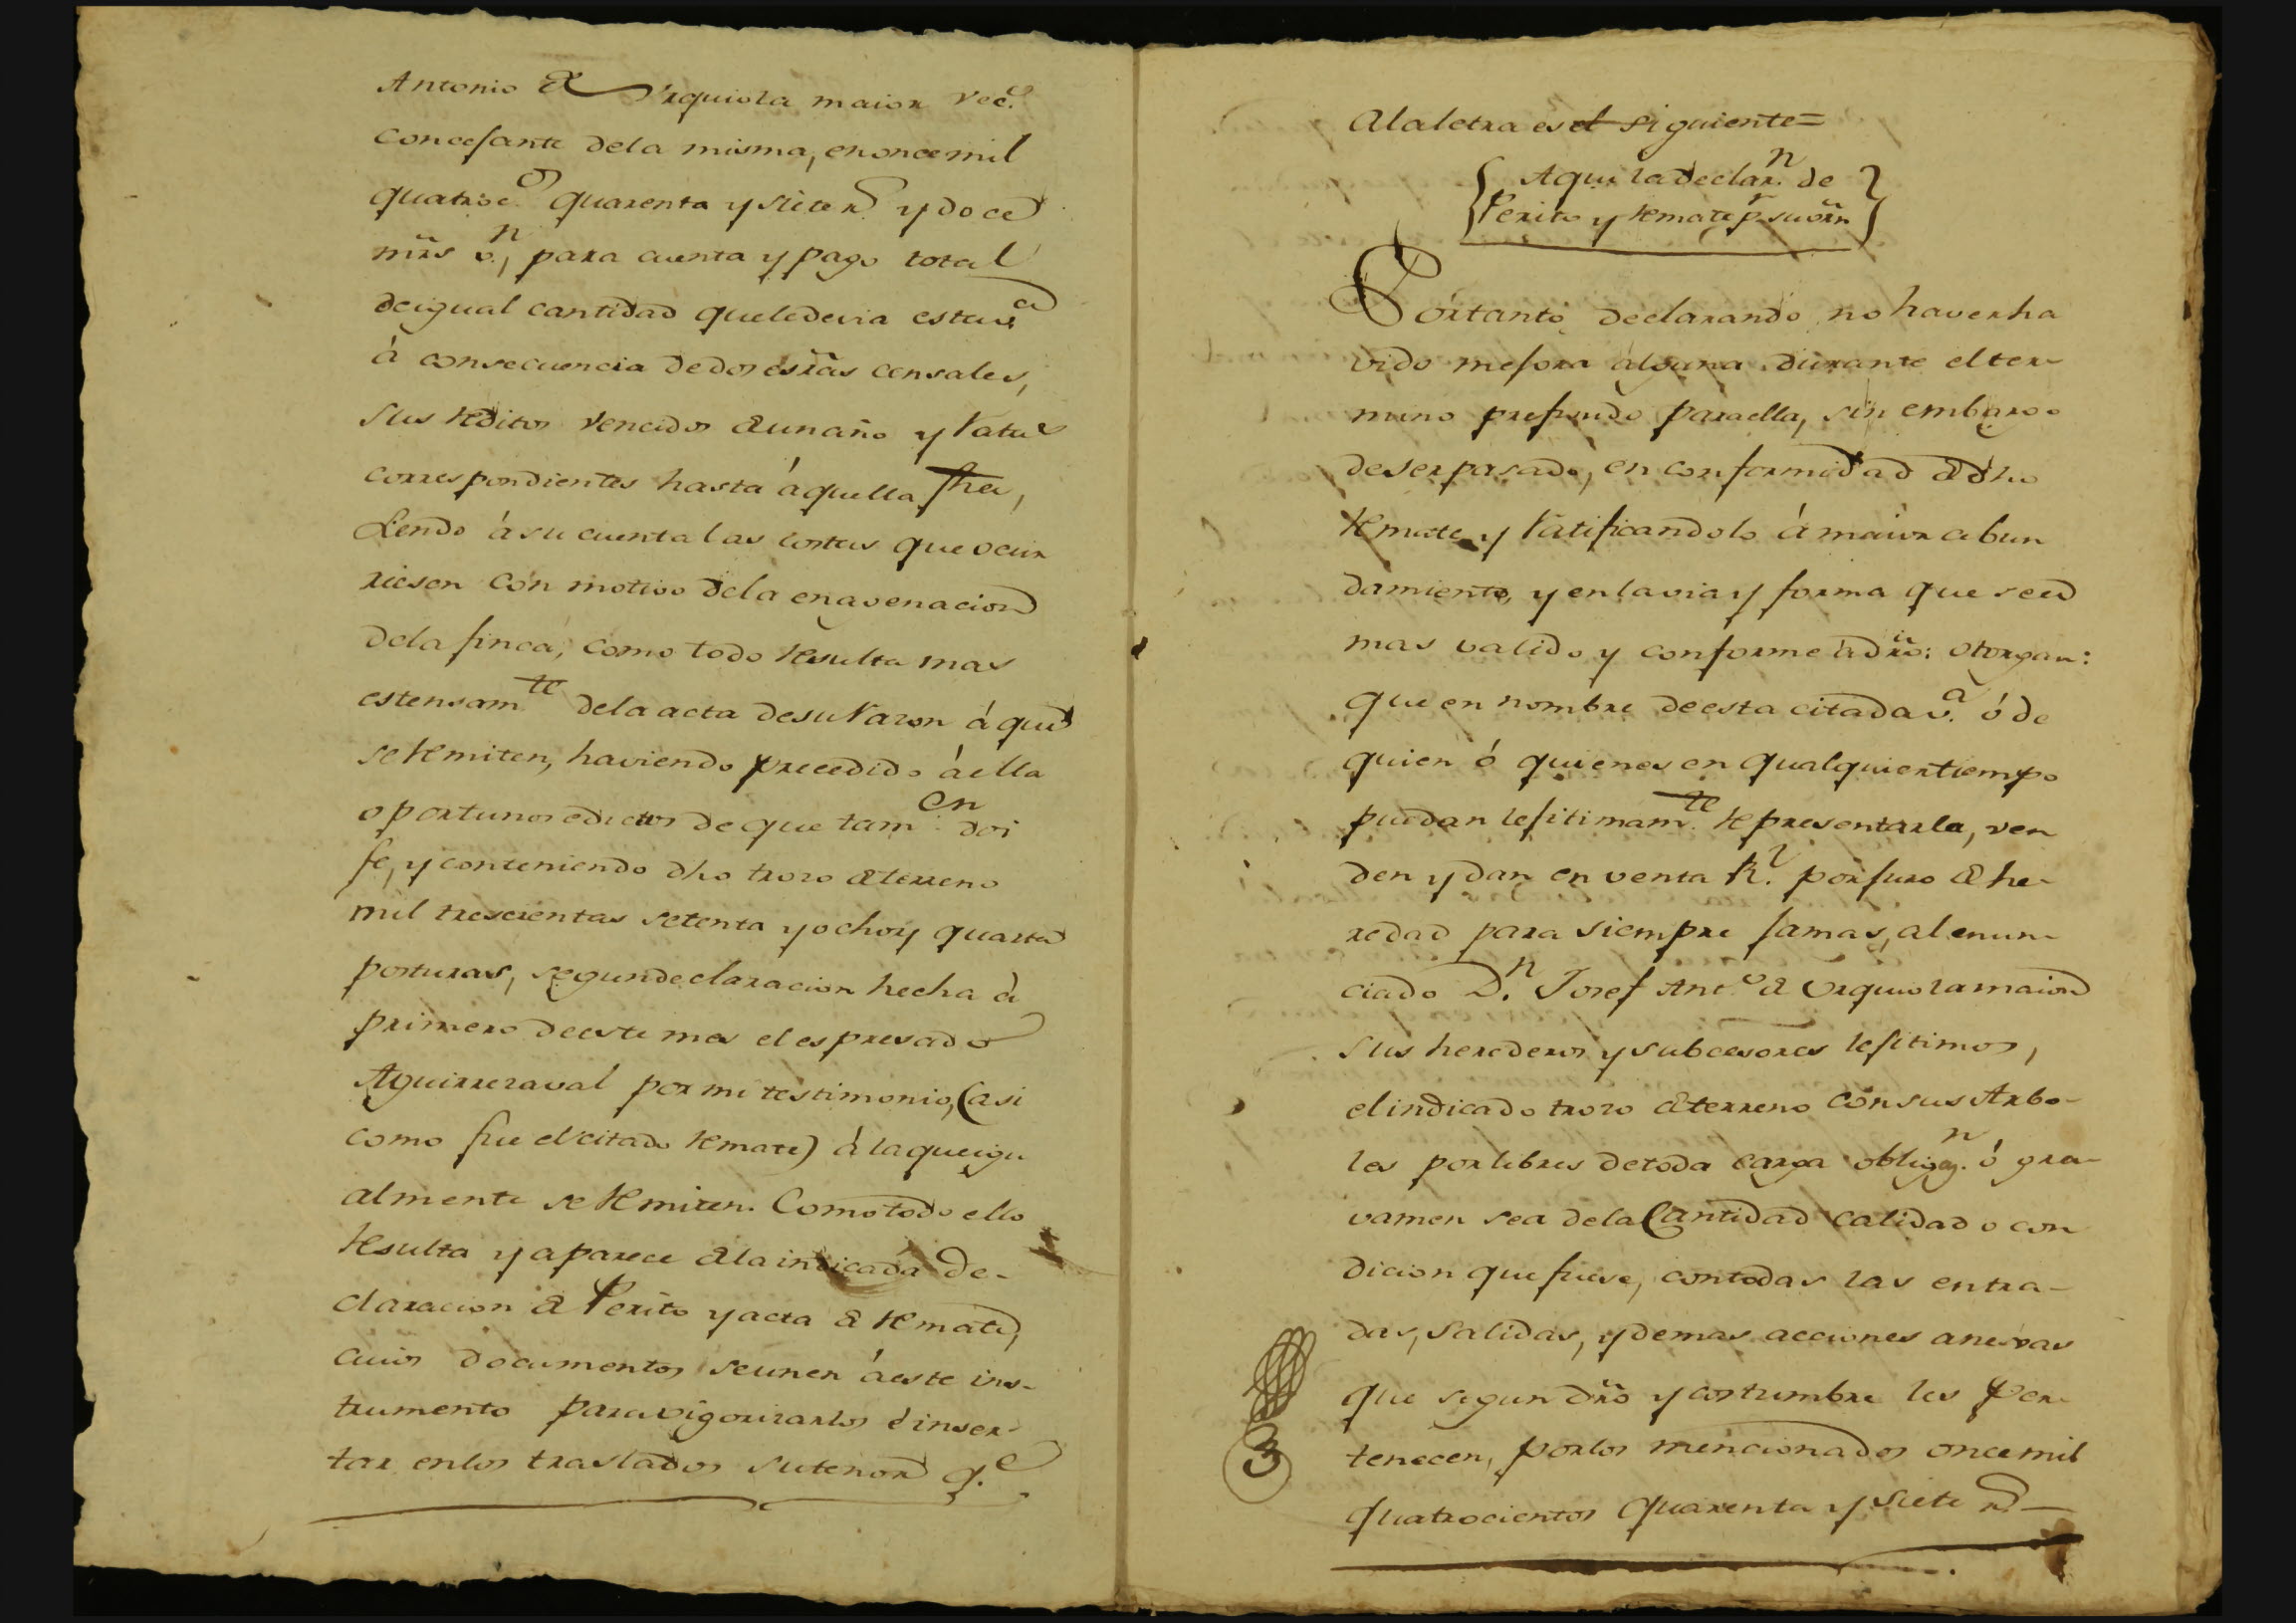 Antonio de Urquiola maior vec.º
concesante dela misma, en once mil
quatroc.os quarenta y siete r.s y doce
mrs v.n, para cuenta y pago total
de igual cantidad que le devia esta v.a
á consecuencia de dos esrãs censales,
sus reditos vencidos de un año y rata
correspondientes hasta áquella fha,
siendo á su cuenta las costas que ocur
riesen con motivo dela enagenacion
dela finca, como todo resulta mas
estensam.te dela acta de su razon á que
se remiten, haviendo precedido áella
oportunos edictos de que tam.en doi
fe, y conteniendo dho trozo de terreno
mil trescientas setenta y ocho y quarta
posturas, segun declaracion hecha á
primero de este mes el espresado
Aguirrezaval por mi testimonio, (asi
como fue el citado remate) á la que igu
almente se remiten. Como todo ello
resulta y aparece de la indicada de-
claracion de Perito y acta de remate,
cuios documentos se unen áeste ins-
trumento para vigorizarlos é inser-
tar en los traslados su tenor q.e
Ala letra es el siguiente=
Aqui la declar.n de
Perito y remate p.r su orñ
Portanto declarando no haver ha
vido mejora alguna durante el ter-
mino prefinido para ella, sin embargo
de ser pasado, en conformidad de dho
remate y ratificandolo á maior abun
damiento, y en la via y forma que sea
mas valido y conforme á drõ: otorgan:
que en nombre de esta citada v.a ó de
quien ó quienes en qualquier tiempo
puedan lejitimam.te representarla, ven
den y dan en venta R.l por juro de he-
redad para siempre jamas, al enun-
ciado D.n Josef Ant.o de Urquiola maior
sus herederos y subcesores lejitimos,
el indicado trozo de terreno con sus Arbo-
les por libres de toda carga oblig.n ó gra-
vamen sea dela Cantidad calidad o con
dicion que fuese, con todas las entra-
das, salidas, y demas acciones anexas
que segun drõ y costumbre les per-
tenecen, por los mencionados once mil
quatrocientos quarenta y siete r.s